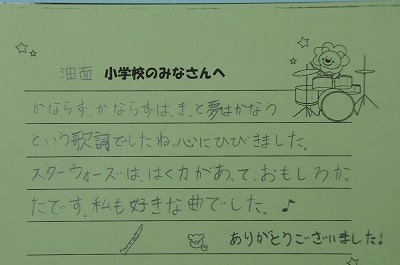 油面 小学校のみなさんへ
かならず、かならずは、き、と夢はかなう
という歌詞でしたね。心にひびきました。
スターウォーズは、はく力があって、おもしろか、
たです。私も好きな曲でした。♪
ありがとうございました!